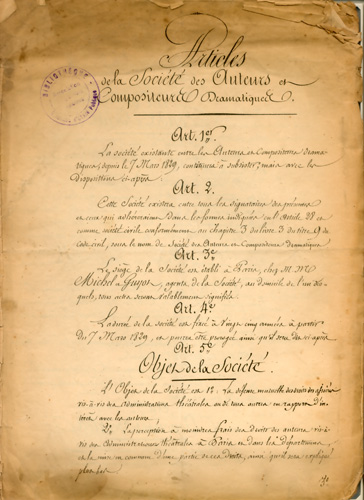 Articles
de la Société des Auteurs et
Compositeurs Dramatiques.
BIBLIOTHÈQUE
Art. 1er
La société existante entre les Auteurs et Compositeurs drama-
tiques, depuis le 7 Mars 1829, continuera à subsister, mais avec les
dispositions ci après.
Art. 2.
Cette Société existera entre tous les signataires des présentes
et ceux qui adhéreront dans les formes indiquées en l'article 28 et
comme société civile conformément au chapitre 3 du livre 3 du titre 9 du
code civil, sous le nom de Société des Auteurs et Compositeurs dramatiques
Art. 3e
Le siège de la Société est établi à Paris, chez M. M.
Michel et Guyot, agents de la Société, au domicile de l'un des-
quels, tous actes seront valablement signifiés
Art. 4e
La durée de la société est fixée à vingt cinq années à partir
du 7 Mars 1829, et pourra être prorogée ainsi qu'il sera dit ci-après
Art. 5e
Objet de la Société.
L'Objet de la Société est 1o. La défense mutuelle des droits des associés
vis-à-vis des administrations théâtrales ou de tous autres en rapport d'in-
térêt avec les auteurs.
2o. La perception à moindres frais des droits des auteurs vis-à-
vis des administrations théâtrales à Paris et dans les départements,
et la mise en commun d'une partie de ces droits, ainsi qu'il sera expliqué
plus bas